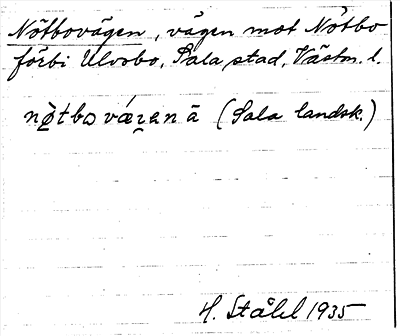 Nötbovägen, vägen mot Nötbo
förbi Ulvsbo, Sala stad, Västm. l.
(Sala landsk.)
H. Ståhl 1935